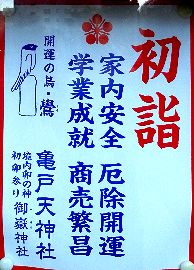 初詣
家内安全 厄除開運
学業成就 商売繁昌
開運の鳥・鷽
亀戸天神社
境内卯の神
初卯参り 御嶽神社